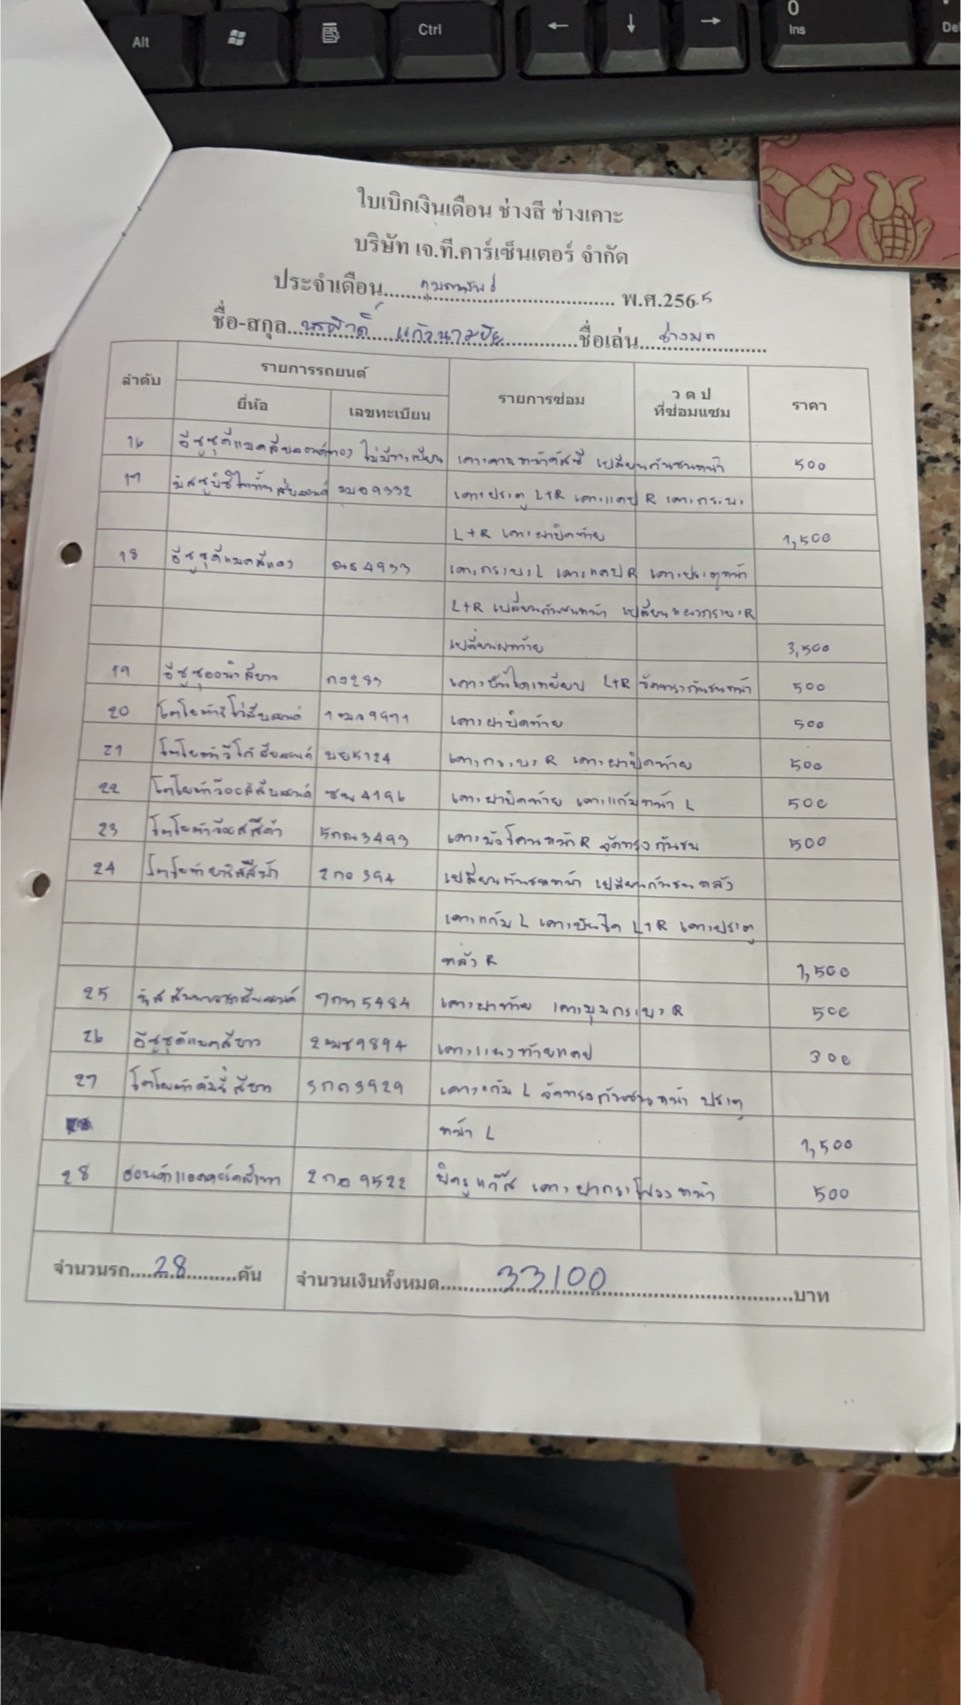 Alt
Ctrl
←
↓
→
0
Ins
ใบเบิกเงินเดือน ช่างสี ช่างเคาะ
บริษัท เจ.ที.คาร์เซ็นเตอร์ จำกัด
ประจำเดือน....กุมภาพันธ์.... พ.ศ.2565
ชื่อ-สกุล.... แก้วนามชัย....ชื่อเล่น....
ลำดับ รายการรถยนต์ รายการซ่อม ว ด ป ที่ซ่อมแซม ราคา
ยี่ห้อ เลขทะเบียน
16 อีซูซุดีแมคสีบลอนด์ทอง ไม่มีทะเบียน เคาะคานหน้าคัสซี เปลี่ยนกันชนหน้า 500
17 9332 เคาะประตู L+R เคาะแคป R เคาะกระบะ
L+R เคาะฝาปิดท้าย 1,500
18 อีซูซุดีแมคสีแดง 4933 เคาะกระบะ L เคาะแคป R เคาะประตูหน้า
L+R เปลี่ยนกันชนหน้า เปลี่ยน R
เปลี่ยนฝาท้าย 3,500
19 อีซูซุ สีขาว เคาะบันไดเหยียบ L+R จัดทรงกันชนหน้า 500
20 โตโยต้ารีโว่สีบลอนด์ เคาะฝาปิดท้าย 500
21 โตโยต้าวีโก้สีบลอนด์ เคาะกระบะ R เคาะฝาปิดท้าย 500
22 โตโยต้าวีออสสีบลอนด์ 4196 เคาะฝาปิดท้าย เคาะแก้มหน้า L 500
23 โตโยต้าวีออสสีดำ 3493 เคาะบังโคลนหน้า R จัดทรงกันชน 500
24 โตโยต้ายาริสสีฟ้า 2กอ 394 เปลี่ยนกันชนหน้า เปลี่ยนกันชนหลัง
เคาะแก้ม L เคาะบันได L+R เคาะประตู
หลัง R 1,500
25 5484 เคาะฝาท้าย เคาะมุมกระบะ R 500
26 อีซูซุดีแมคสีขาว 9894 เคาะแผงท้ายแคป 300
27 โตโยต้าคัมรี่สีขาว 3กก3929 เคาะแก้ม L จัดทรงกันชนหน้า ประตู
หน้า L 1,500
28 ฮอนด้าแอคคอร์ดสีเทา 2กอ 9522 เคาะฝากระโปรงหน้า 500
จำนวนรถ....28....คัน จำนวนเงินทั้งหมด....33100....บาท